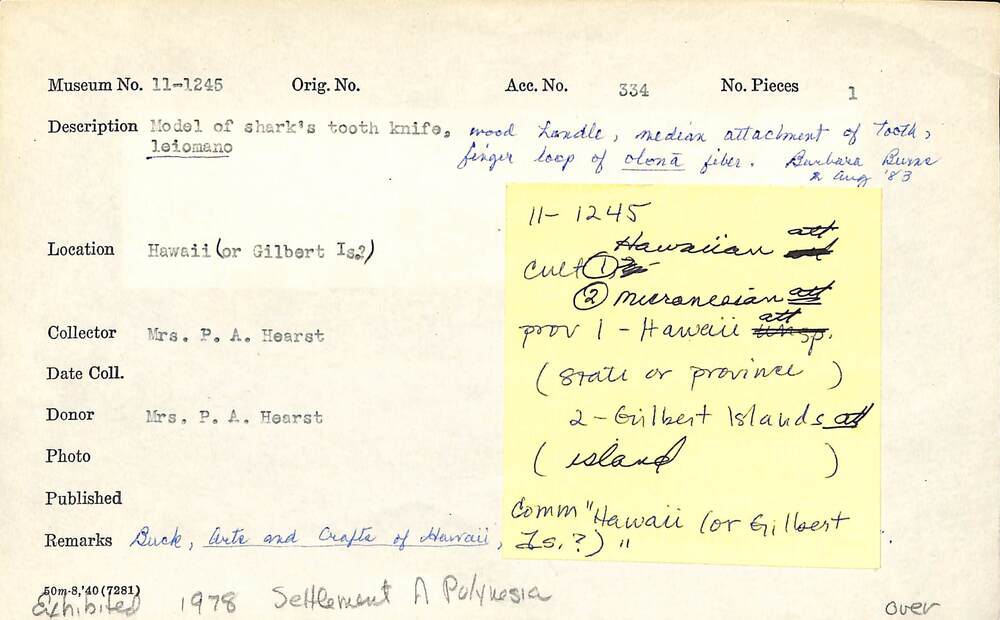 Museum No. 11-1245 Orig. No. Acc. No. 334 No. Pieces 1
Description Model of shark's tooth knife, wood handle, median attachment of tooth,
leiomano finger loop of olonā fiber. Barbara Burns
2 Aug '83
11- 1245
Location Hawaii (or Gilbert Is?)
Hawaiian att
Cult ①
② Micronesian att
Collector Mrs. P. A. Hearst
prov 1 - Hawaii att
Date Coll.
(state or province)
Donor Mrs. P. A. Hearst
2 - Gilbert Islands att
Photo
(island)
Published
Comm "Hawaii (or Gilbert
Is.?)"
Remarks Buck, Arts and Crafts of Hawaii,
50m-8,'40 (7281)
Exhibited 1978 Settlement Polynesia
over